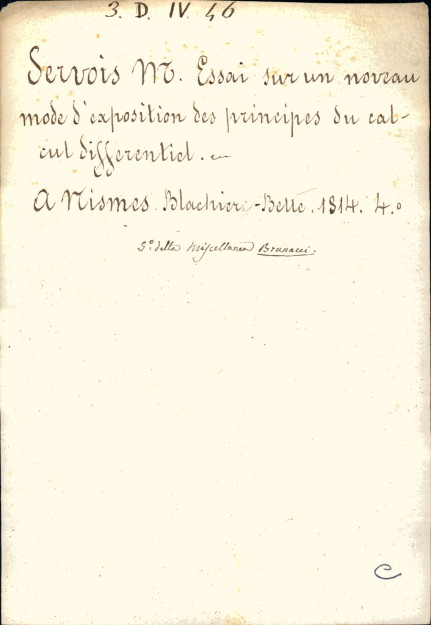 3. D. IV. 46
Servois M. Essai sur un noveau
mode d'exposition des principes du cal-
cul differentiel.
A Nismes. Blachier-Belle. 1814. 4.º
5.º della Miscellanea Brunacci.
C